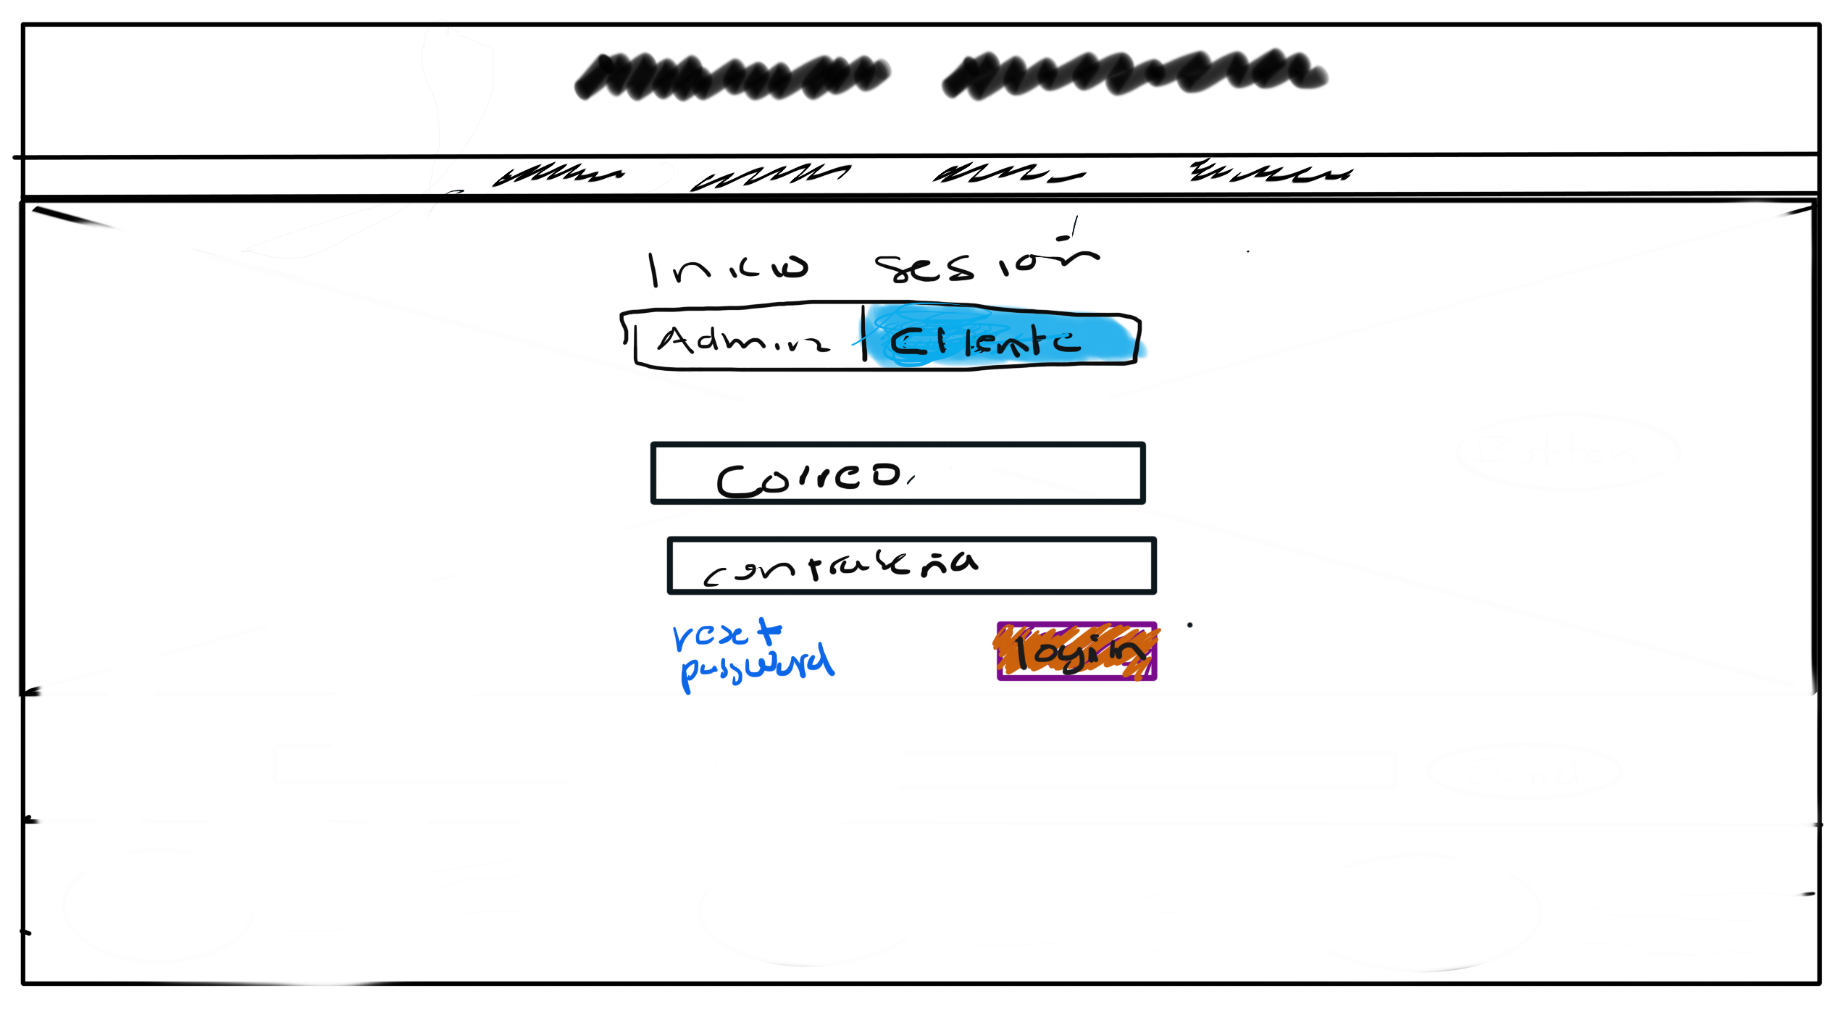 Inicio sesión
Admin Cliente
Correo.
contraseña
reset
password
login